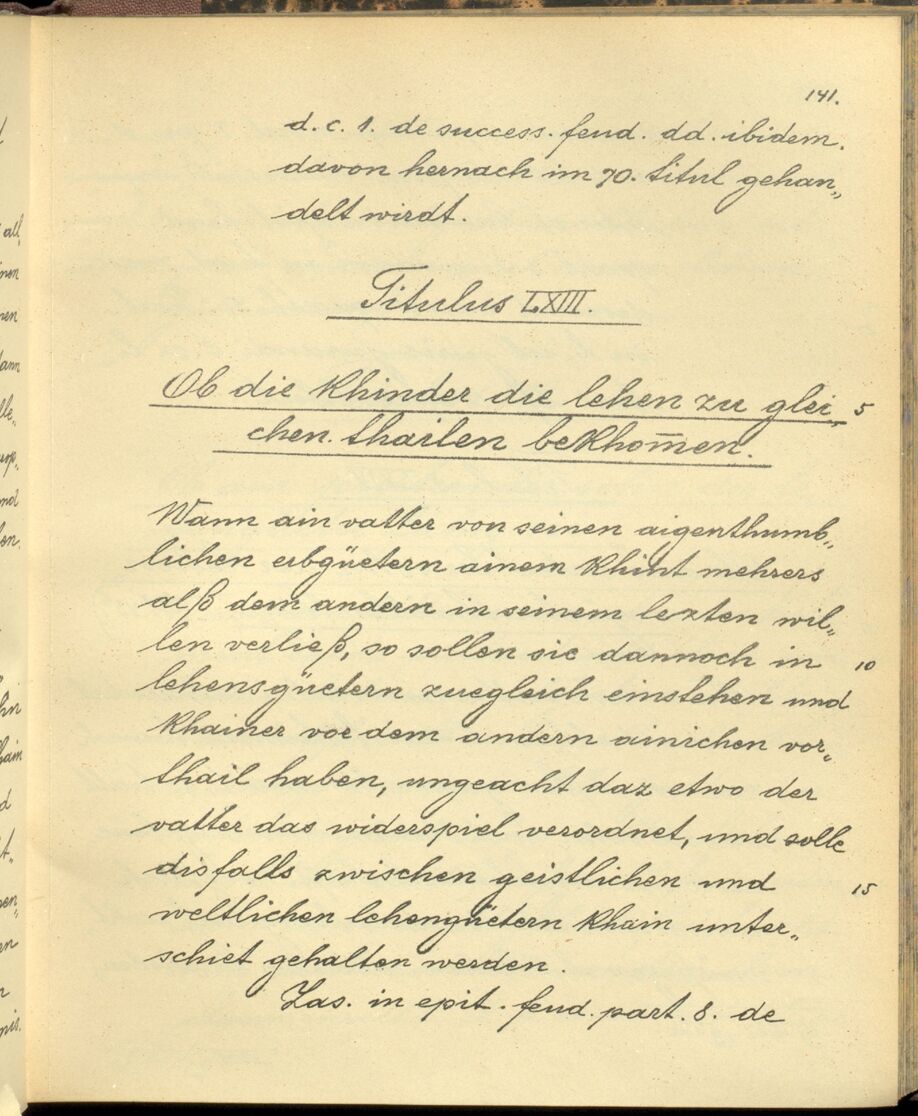 141.
d. c. 1. de success. feud. dd. ibidem.
davon hernach im 70. titul gehan„
delt wirdt.
Titulus LXIII.
Ob die Khinder die lehen zu glei„ 5
chen thailen bekhom̄en.
Wann ain vatter von seinen aigenthumb„
lichen erbgüetern ainem Khint mehrers
alß dem andern in seinem lezten wil„
len verließ, so sollen sie dannoch in 10
lehensgüetern zuegleich einstehen und
Khainer vor dem andern ainichen vor„
thail haben, ungeacht daz etwo der
vatter das widerspiel verordnet, und solle
disfalls zwischen geistlichen und 15
weltlichen lehengüetern Khain unter„
schiet gehalten werden.
Zas. in epit. feud. part. 8. de